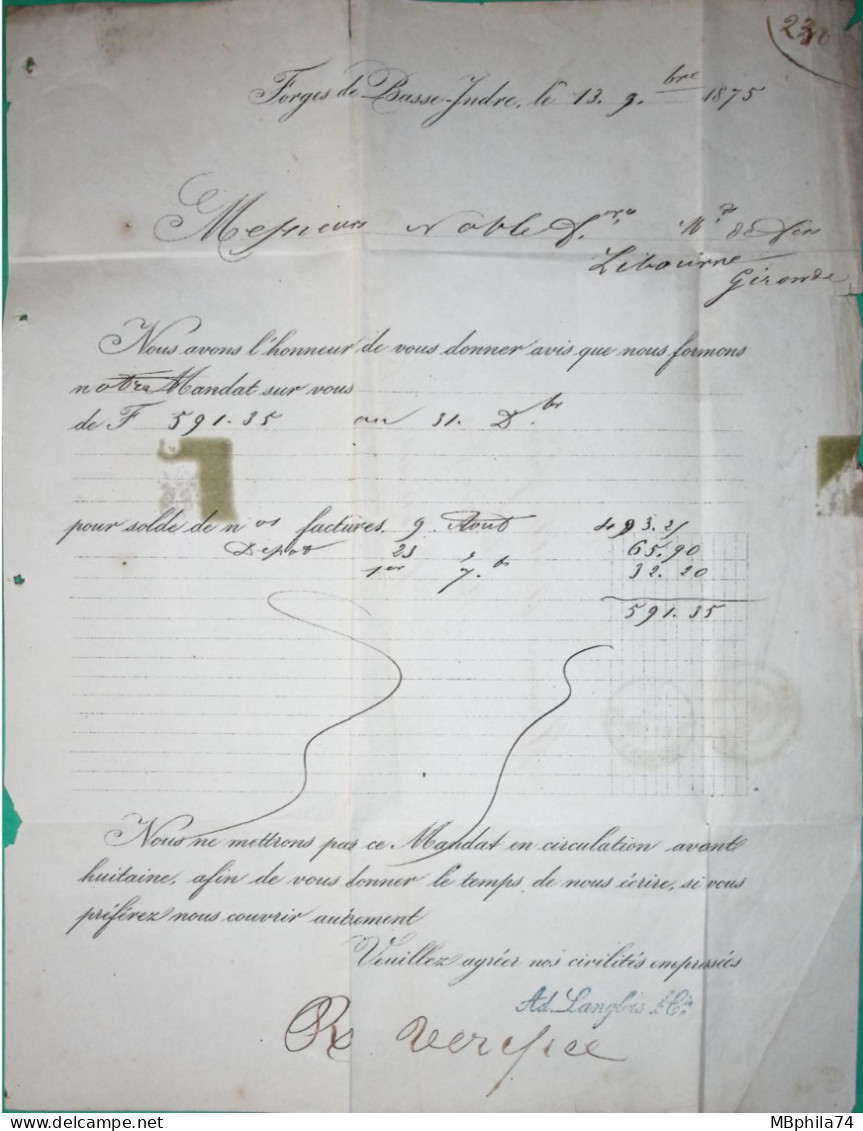 230
Forges de Basse-Indre, le 13. 9.bre 1875
Messieurs Noble F.res M.d de Fers
Libourne
Gironde
Nous avons l'honneur de vous donner avis que nous formons
notre Mandat sur vous
de F 591.35 au 31. D.br
pour solde de nos factures 9 Aout 493.25
Depot 23 65.90
1er 7.br 32.20
591.35
Nous ne mettrons pas ce Mandat en circulation avant
huitaine, afin de vous donner le temps de nous écrire, si vous
préférez nous couvrir autrement
Veuillez agréer nos civilités empressées
Ad. Langlois & Cie
MBphila74